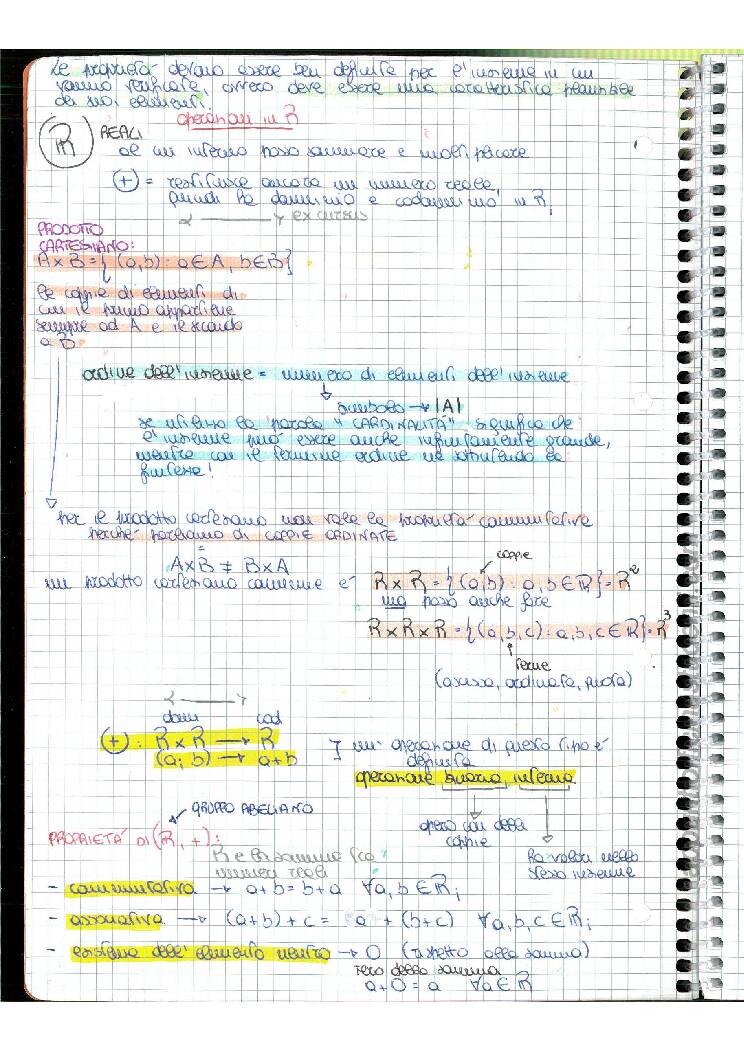 Le proprietà devono essere ben definite per l'insieme in cui
vanno verificate, ovvero deve essere una caratteristica
dei suoi elementi.
operazioni in R
R REALI
al suo interno posso sommare e moltiplicare
(+) = restituisce ancora un numero reale,
quindi ha dominio e codominio in R,
excursus
PRODOTTO
CARTESIANO:
A×B = {(a,b) : a∈A, b∈B}
le coppie di elementi di
cui il primo appartiene
sempre ad A e il secondo
a B
ordine dell'insieme = numero di elementi dell'insieme
simbolo → |A|
se utilizzo la parola "CARDINALITÀ" significa che
l'insieme può essere anche infinitamente grande,
mentre con il termine ordine ne sottintendo la
finitezza!
per il prodotto cartesiano non vale la proprietà commutativa
perché parliamo di COPPIE ORDINATE
A×B ≠ B×A
coppie
un prodotto cartesiano comune è R×R = {(a,b) : a,b∈R} = R²
ma posso anche fare
R×R×R = {(a,b,c) : a,b,c∈R} = R³
terne
(ascissa, ordinata, quota)
dom cod
(+) : R×R → R
(a;b) → a+b
un'operazione di questo tipo è
definita
operazione binaria, interna
opero con delle
coppie
ha valori nello
stesso insieme
GRUPPO ABELIANO
PROPRIETÀ DI (R, +):
R e la somma tra
numeri reali
- commutativa → a+b = b+a ∀a,b∈R;
- associativa → (a+b)+c = a+(b+c) ∀a,b,c∈R;
- esistenza dell'elemento neutro → 0 (rispetto alla somma)
zero della somma
a+0 = a ∀a∈R